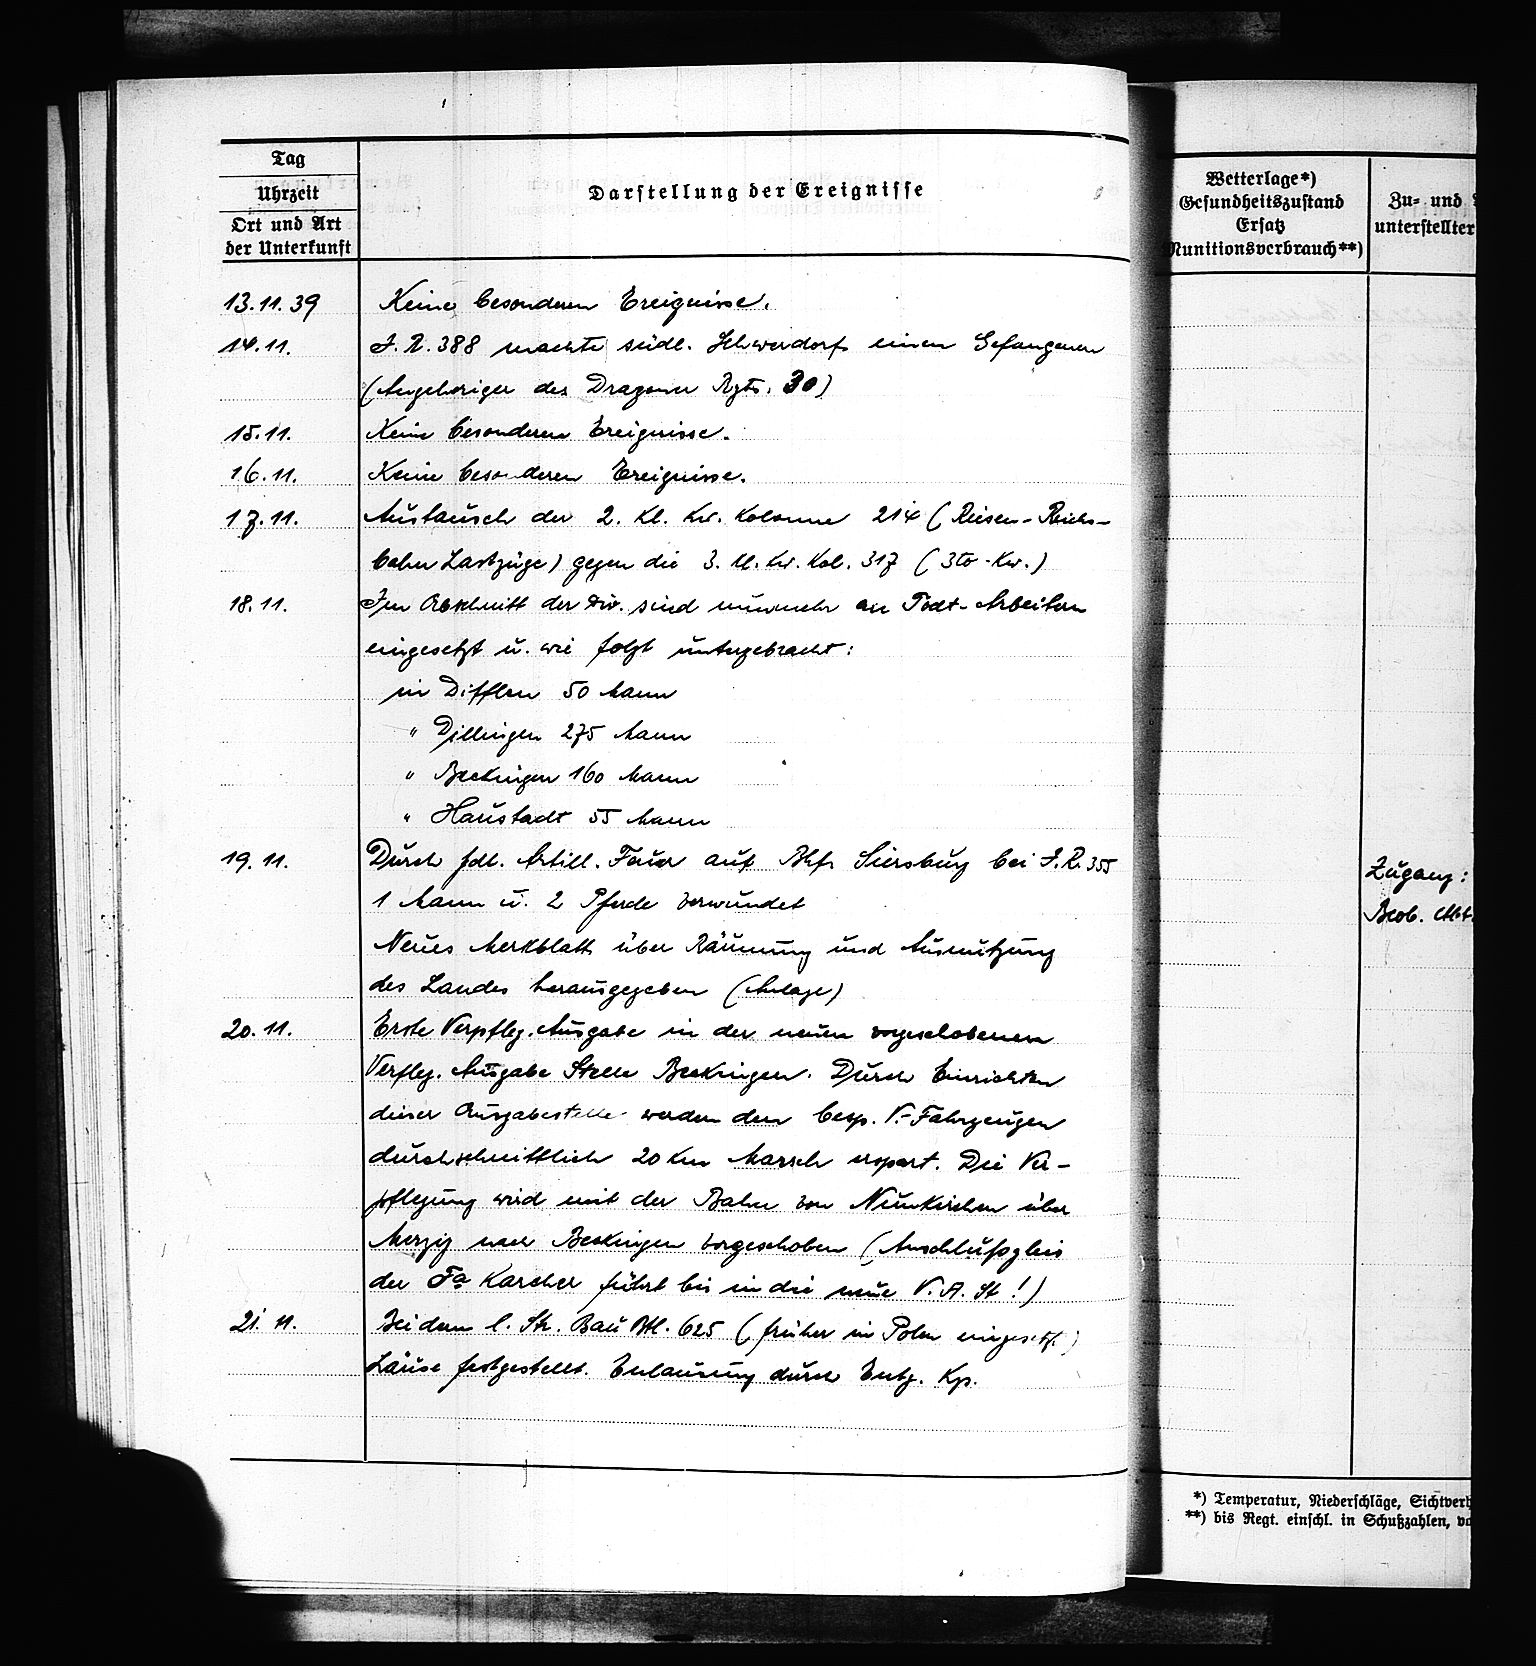 Tag
Uhrzeit
Ort und Art
der Unterkunft
Darstellung der Ereignisse
13.11.39 Keine besonderen Ereignisse.
14.11. I.R. 388 machte südl. Schwerdorf einen Gefangenen
(Angehöriger des Dragoner Rgts. 30)
15.11. Keine besonderen Ereignisse.
16.11. Keine besonderen Ereignisse.
17.11. Austausch der 2. kl. Kw. Kolonne 214 (Riesen-Reichs-
bahn Lastzüge) gegen die 3. kl. Kw. Kol. 317 (3to-Kw.)
18.11. Im Abschnitt der Div. sind nunmehr an Todt-Arbeitern
eingesetzt u. wie folgt untergebracht:
in Difflen 50 Mann
" Dillingen 275 Mann
" Beckingen 160 Mann
" Haustadt 55 Mann
19.11. Durch fdl. Artill. Feuer auf Bhf. Siersburg bei I.R. 355
1 Mann u. 2 Pferde verwundet
Neues Merkblatt über Räumung und Ausnutzung
des Landes herausgegeben (Anlage)
20.11. Erste Verpfleg. Ausgabe in der neuen vorgeschobenen
Verpfleg. Ausgabe Stelle Beckingen. Durch Einrichten
dieser Ausgabestelle werden den besp. V.-Fahrzeugen
durchschnittlich 20 km Marsch erspart. Die Ver-
pflegung wird mit der Bahn von Neunkirchen über
Merzig nach Beckingen vorgeschoben (Anschlußgleis
der Fa Karcher führt bis in die neue V.A.St!)
21.11. Bei dem l. Str. Bau Btl. 625 (früher in Polen eingesetzt)
Läuse festgestellt. Entlausung durch Entg. Kp.
Wetterlage*)
Gesundheitszustand
Ersatz
Munitionsverbrauch**)
Zu- und
unterstellter
Zugang:
Beob. Abt.
*) Temperatur, Niederschläge, Sichtverh
**) bis Regt. einschl. in Schußzahlen, vo